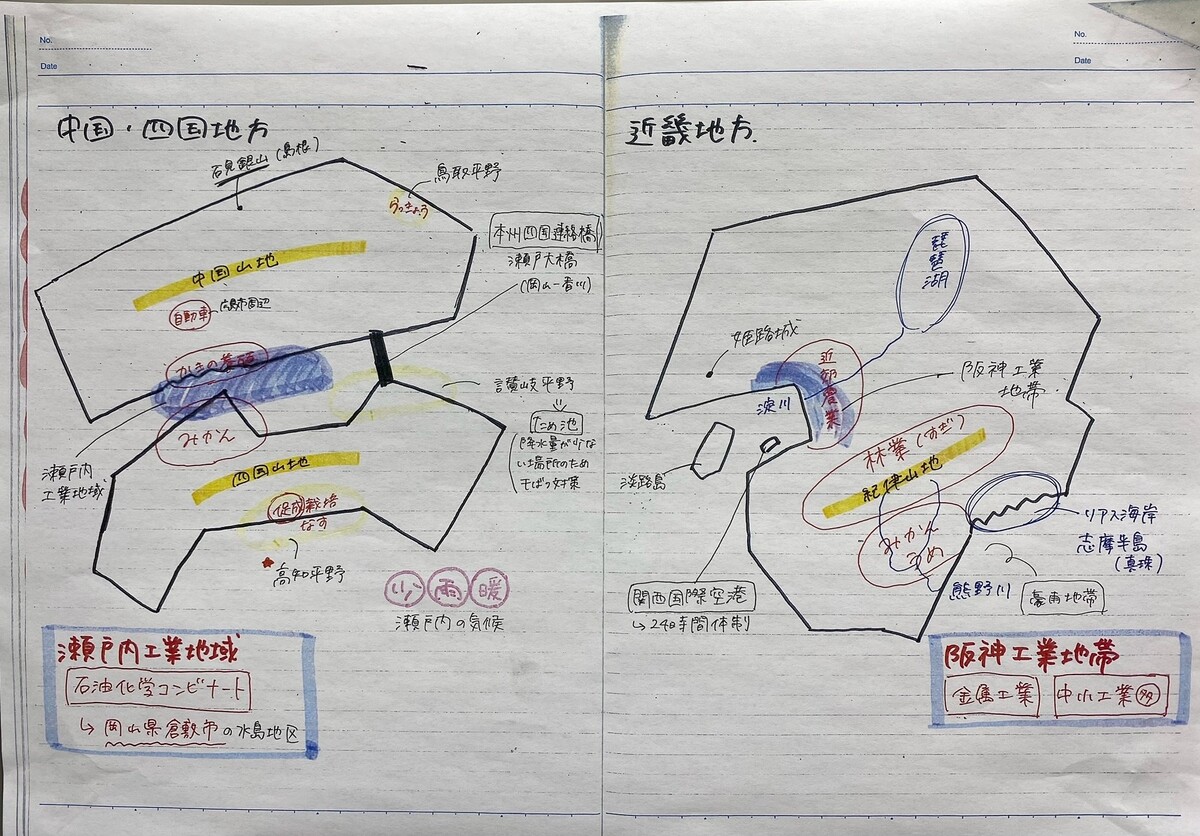 No.
Date
中国・四国地方
石見銀山(島根)
鳥取平野
らっきょう
本州四国連絡橋
瀬戸大橋
(岡山ー香川)
中国山地
自動車
広島市周辺
かきの養殖
讃岐平野
ため池
降水量が少な
い場所のため
干ばつ対策
みかん
瀬戸内
工業地域
四国山地
促成栽培
なす
高知平野
少 雨 暖
瀬戸内の気候
瀬戸内工業地域
石油化学コンビナート
↳岡山県倉敷市の水島地区
No.
Date
近畿地方.
琵琶湖
姫路城
近郊農業
阪神工業
地帯
淀川
淡路島
林業(すぎ)
紀伊山地
みかん
うめ
リアス海岸
志摩半島
(真珠)
熊野川
豪雨地帯
関西国際空港
↳24時間体制
阪神工業地帯
金属工業
中小工業多